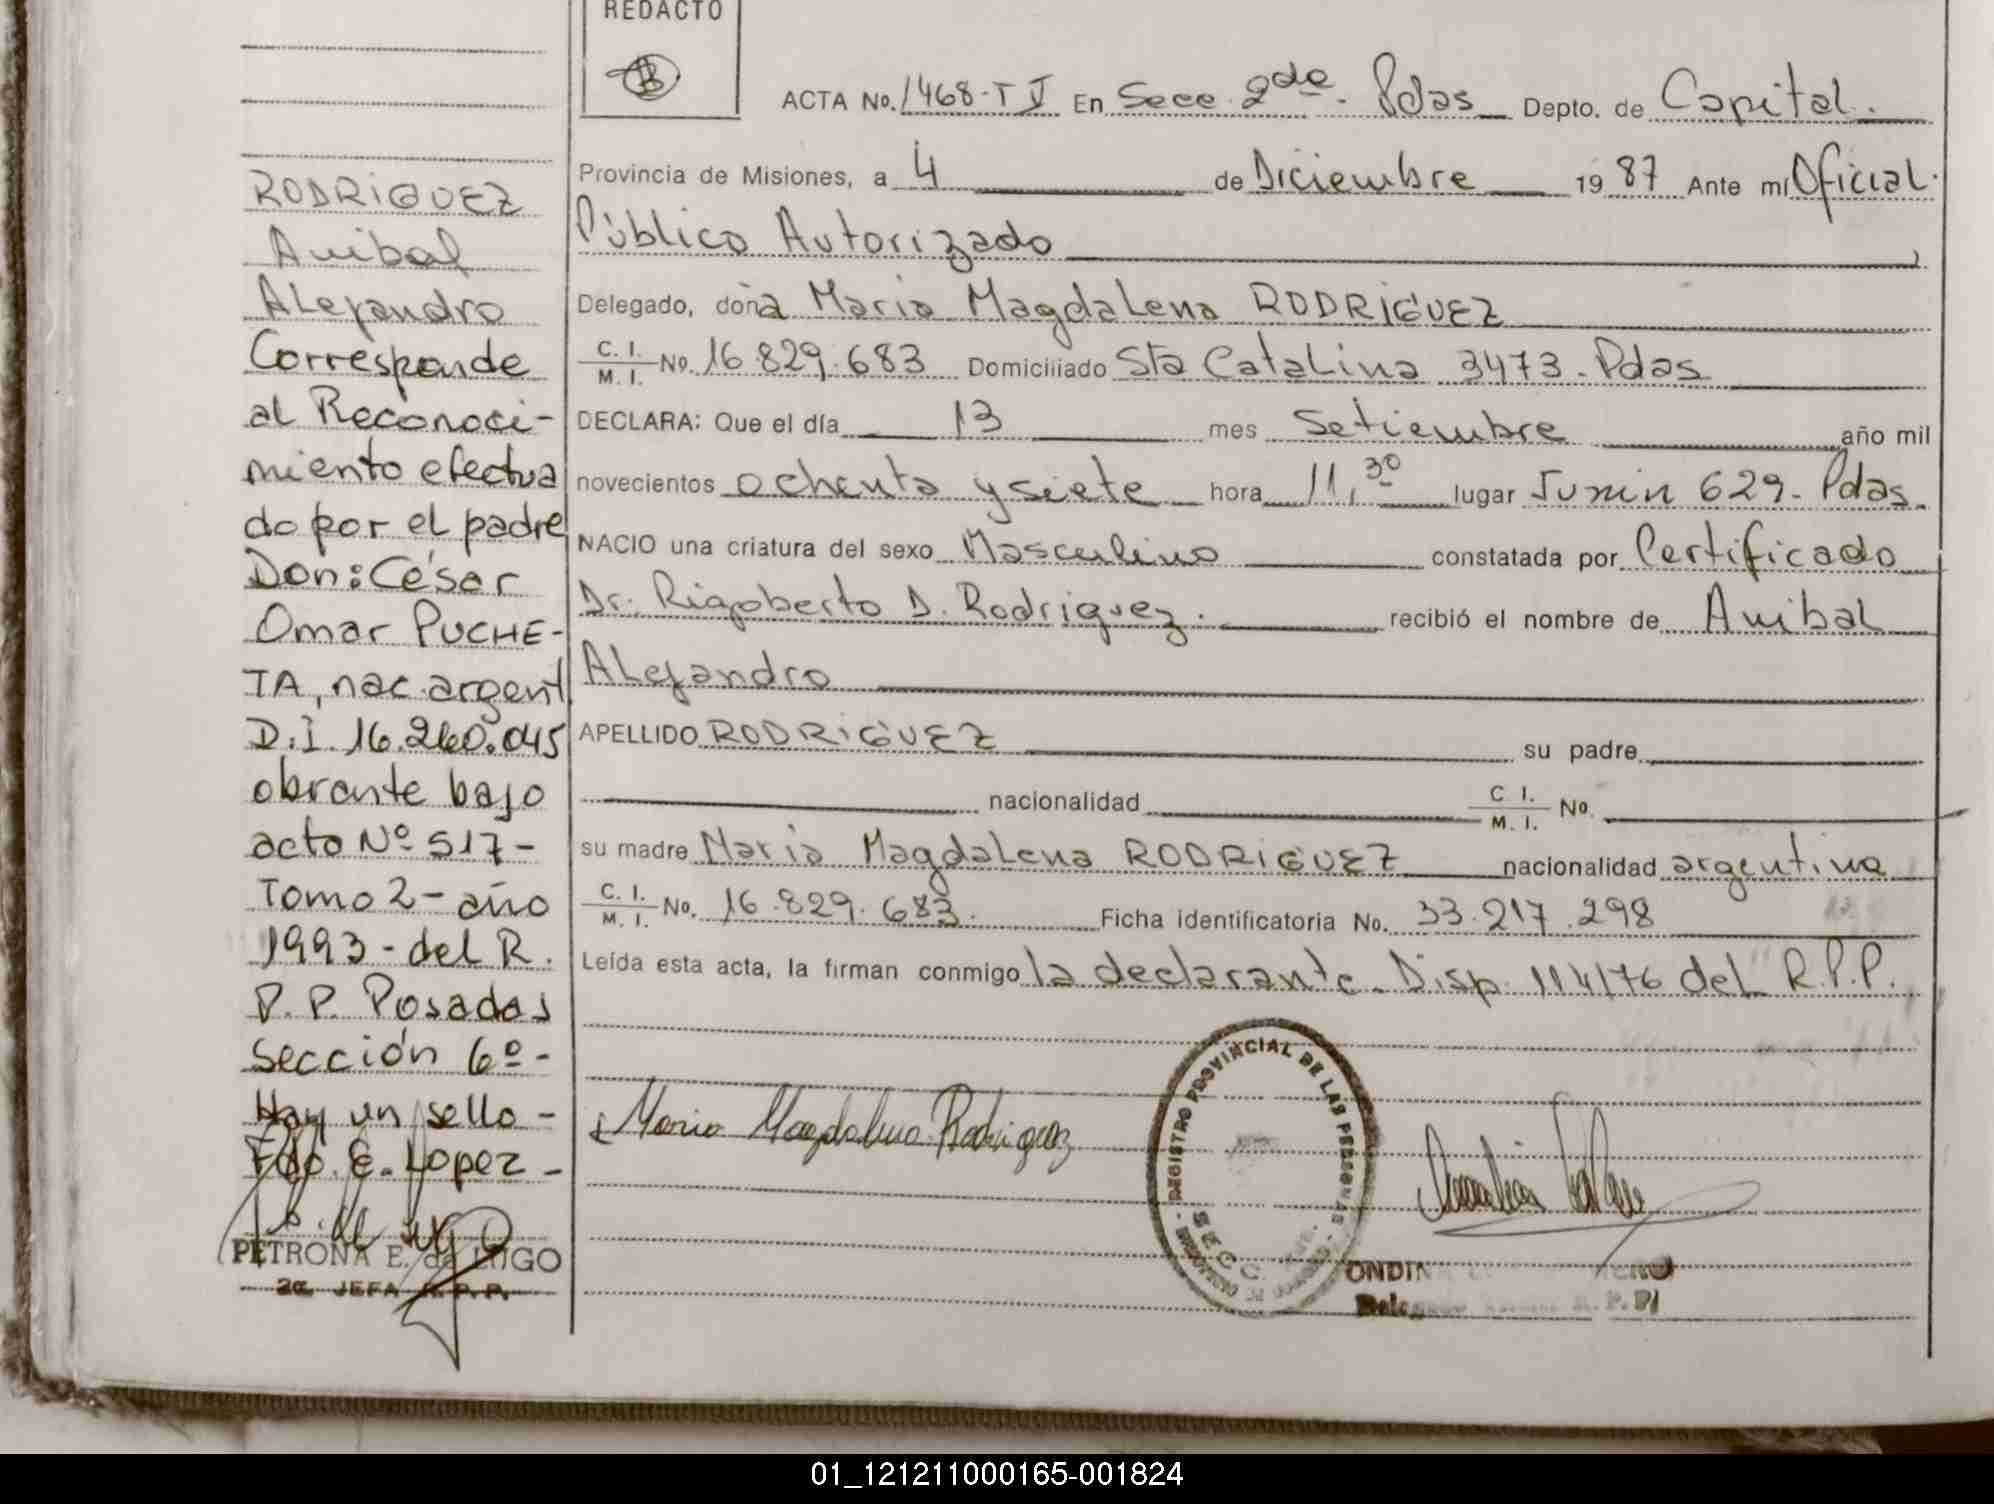 REDACTO
ACTA No. 1468-T V En Secc. 2da. Pdas Depto. de Capital.
Provincia de Misiones, a 4 de Diciembre 19 87 Ante mí Oficial
Público Autorizado
Delegado, doña Maria Magdalena RODRIGUEZ
C. I.
M. I. No. 16.829.683 Domiciliado Sta Catalina 3473 - Pdas
DECLARA: Que el día 13 mes Setiembre año mil
novecientos ochenta y siete hora 11,30 lugar Junin 629 - Pdas.
NACIO una criatura del sexo Masculino constatada por Certificado
Dr. Rigoberto D. Rodriguez. recibió el nombre de Anibal
Alejandro
APELLIDO RODRIGUEZ su padre
nacionalidad C. I.
M. I. No.
su madre Maria Magdalena RODRIGUEZ nacionalidad argentina
C. I.
M. I. No. 16.829.683. Ficha identificatoria No. 33.217.298
Leída esta acta, la firman conmigo la declarante. Disp. 114/76 del R.P.P.
Maria Magdalena Rodriguez
REGISTRO PROVINCIAL DE LAS PERSONAS
SECC.
ONDIN
R. P. P
RODRIGUEZ
Anibal
Alejandro
Corresponde
al Reconoci-
miento efectua
do por el padre
Don: César
Omar PUCHE-
TA, nac. argent
D.I. 16.260.045
obrante bajo
acta Nº 517-
Tomo 2 - año
1993 - del R.
P. P. Posadas
Sección 6º -
Hay un sello -
Fdo. E. Lopez -
PETRONA E. de LUGO
2a JEFA R.P.P.
01_121211000165-001824